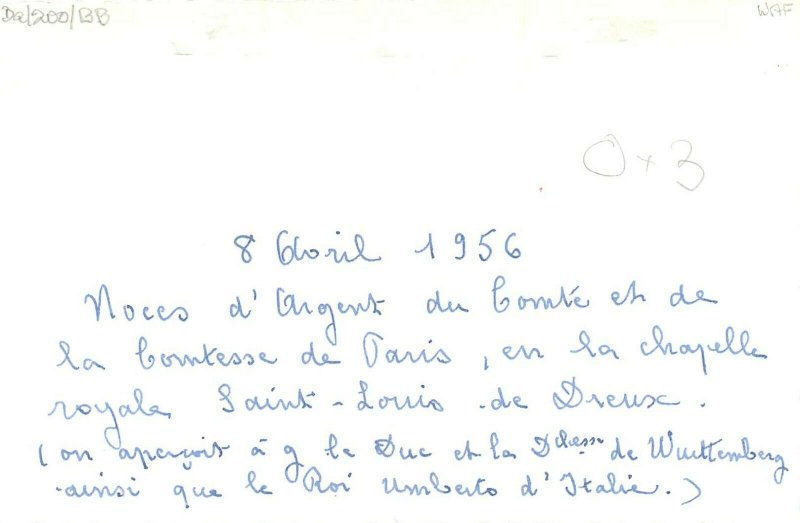 Da/200/BB
WAF
0 x 3
8 Avril 1956
Noces d'Argent du Comté et de
la Comtesse de Paris, en la chapelle
royale Saint-Louis de Dreux.
(on aperçoit à g le Duc et la Dchesse de Wurttemberg
ainsi que le Roi Umberto d'Italie.)